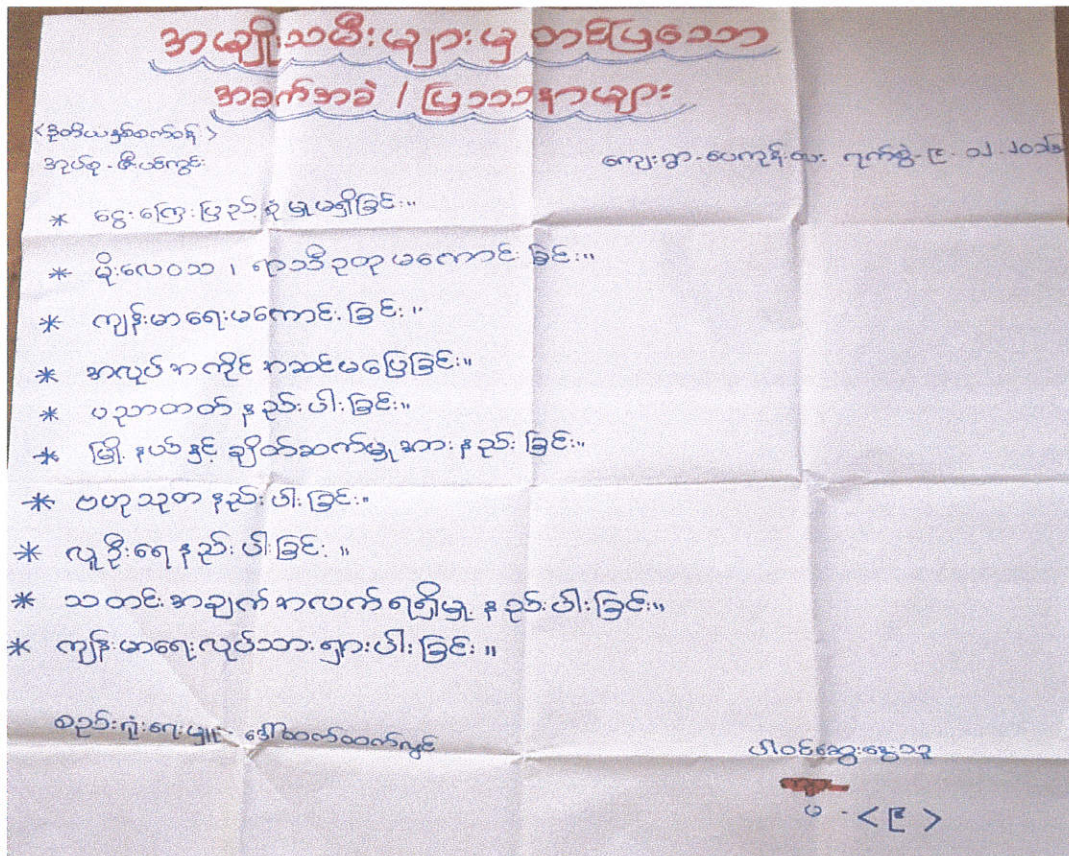 အမျိုးသမီးများမှ တင်ပြသော
အခက်အခဲ / ပြဿနာများ
<ဒုတိယနှစ်စက်ဝန်း>
အုပ်စု - ဇီးပင်ကွင်း ကျေးရွာ - ပေကုန်း ရက်စွဲ - ၉
* ငွေကြေးပြည့်စုံမှုမရှိခြင်း။
* မိုးလေဝသ ၊ ရာသီဥတု မကောင်းခြင်း။
* ကျန်းမာရေးမကောင်းခြင်း။
* အလုပ်အကိုင် အဆင်မပြေခြင်း။
* ပညာတတ် နည်းပါးခြင်း။
* မြို့နယ်နှင့် ချိတ်ဆက်မှု အားနည်းခြင်း။
* ဗဟုသုတ နည်းပါးခြင်း။
* လူဦးရေ နည်းပါးခြင်း ။
* သတင်းအချက်အလက် ရရှိမှု နည်းပါးခြင်း။
* ကျန်းမာရေးလုပ်သား ရှားပါးခြင်း ။
စည်းရုံးရေးမှူး - ဒေါ်ထက်ထက်လွင် ပါဝင်ဆွေးနွေးသူ
မ - <၉>